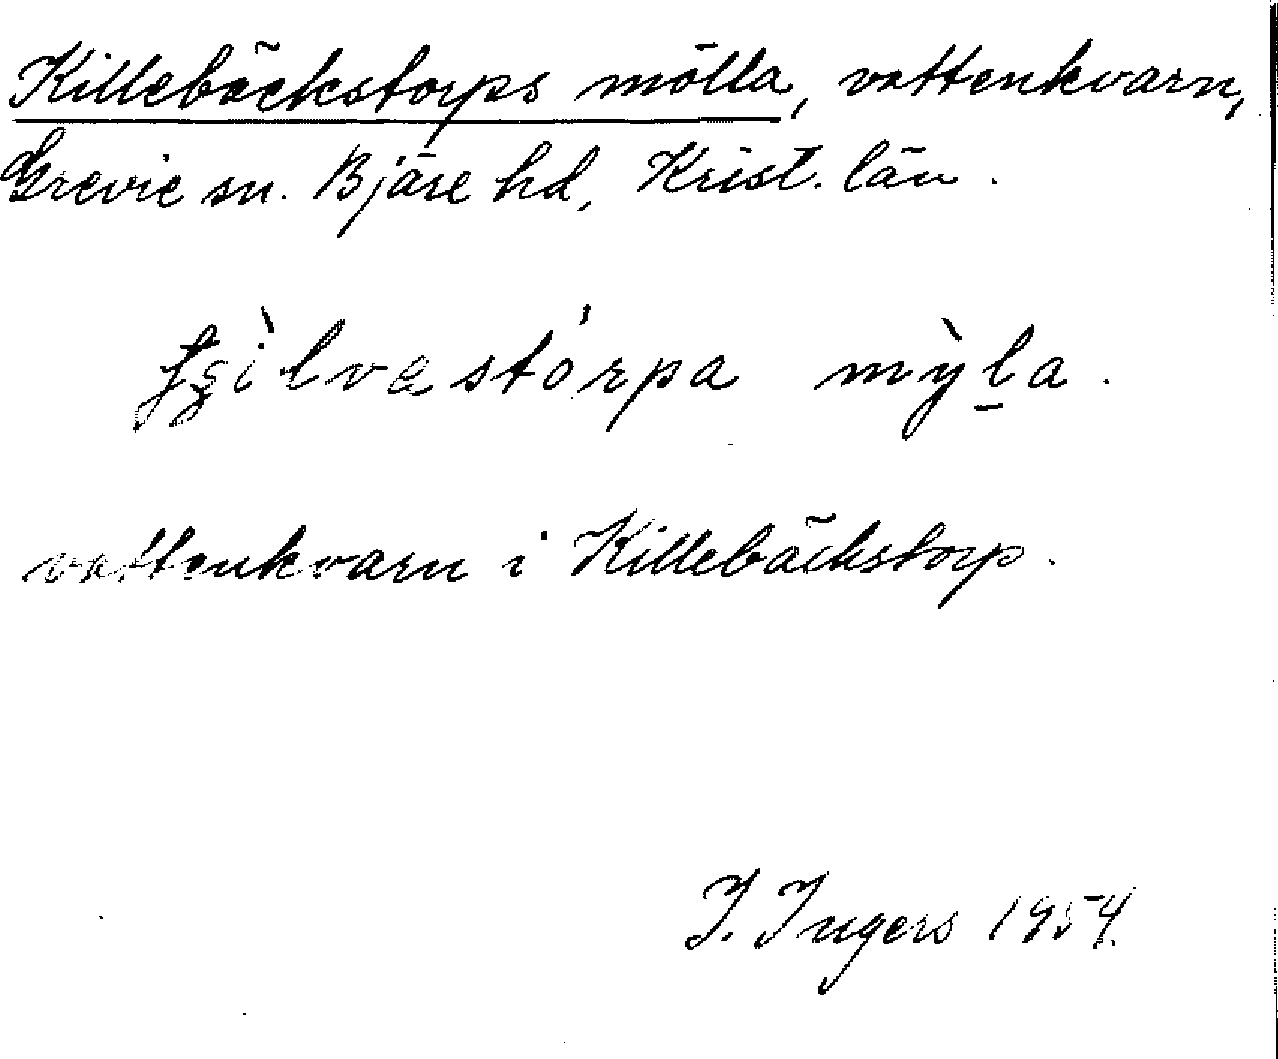 Killebäckstorps mölla, vattenkvarn,
Grevie sn. Bjäre hd, Krist. län.
mỳl̠a.
vattenkvarn i Killebäckstorp.
I. Ingers 1954.